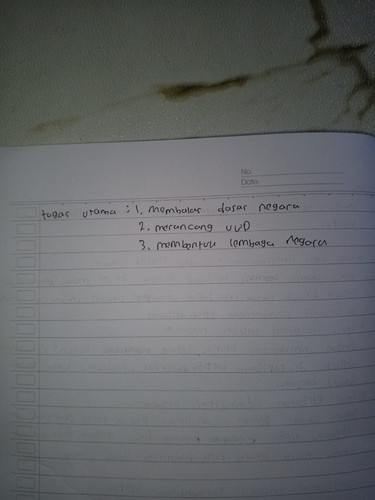 No.
Date.
tugas utama : 1. membahas dasar negara
2. merancang UUD
3. membentuk lembaga negara